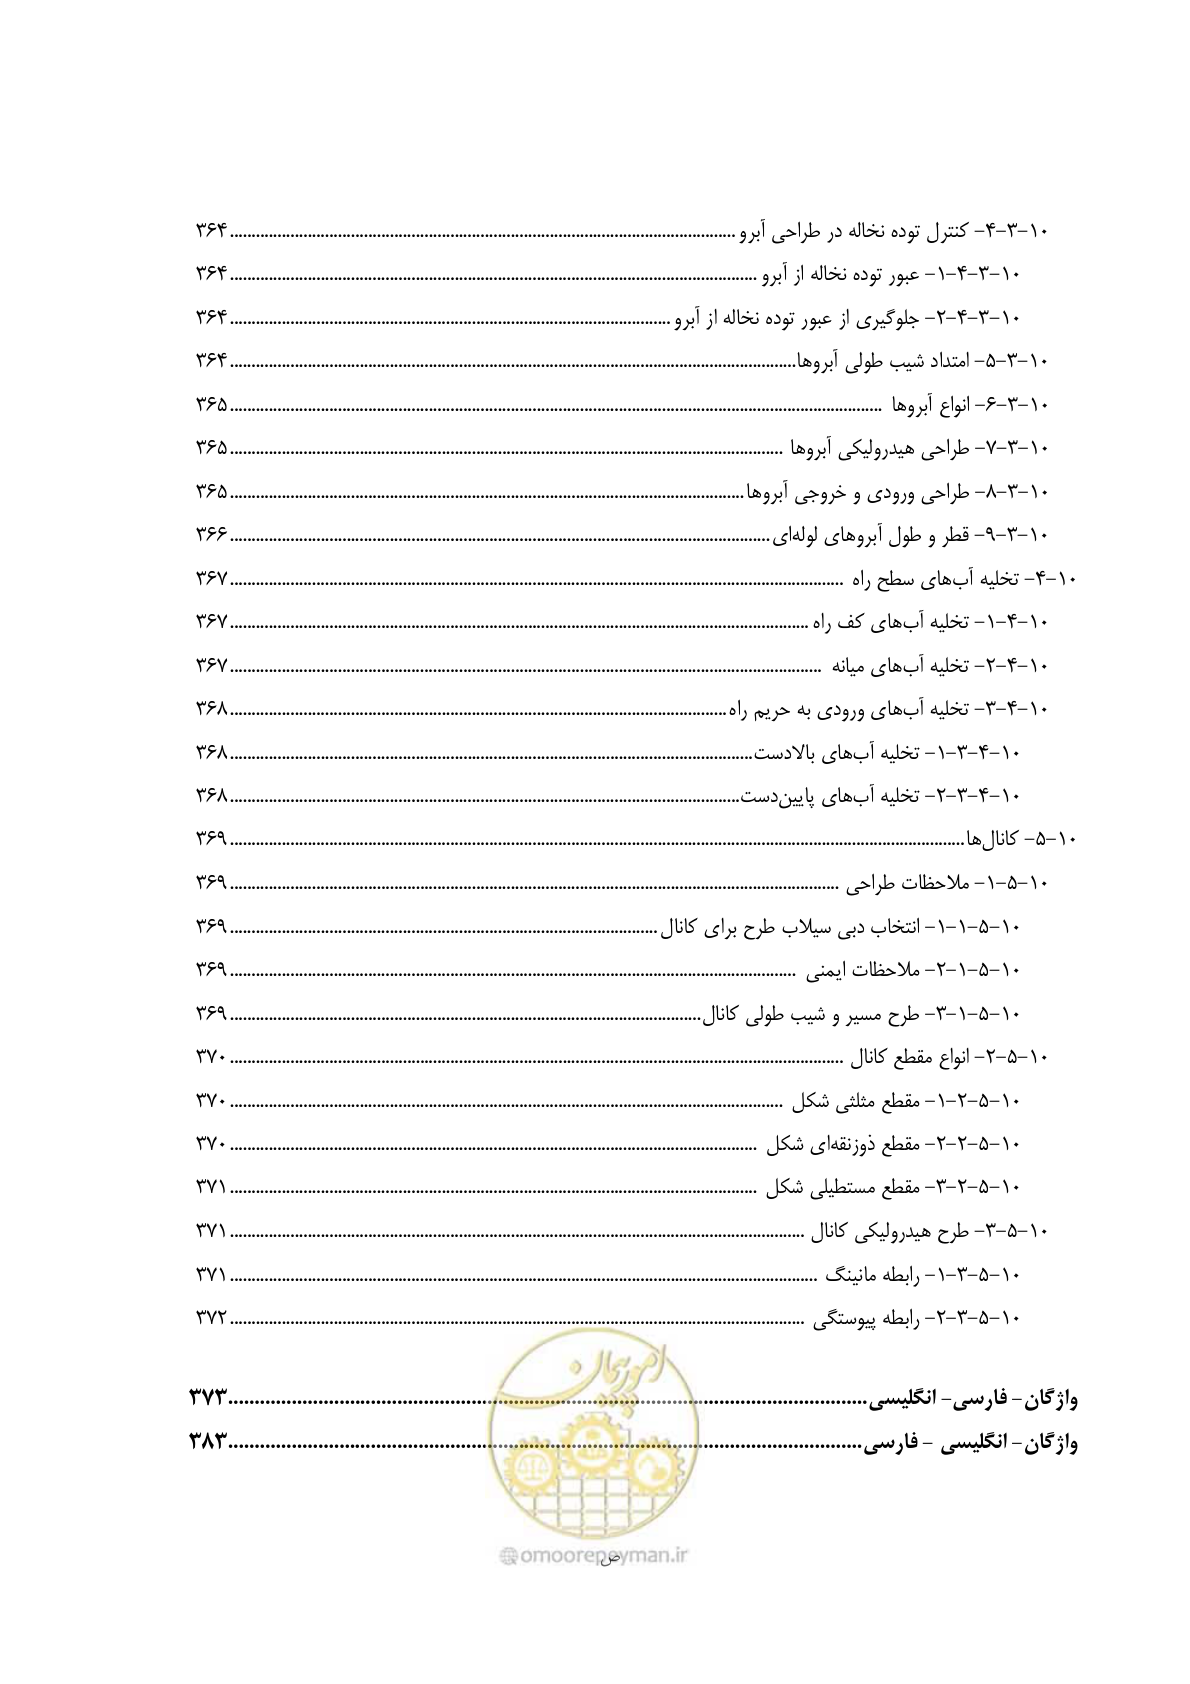 ۱۰-۳-۴- کنترل توده نخاله در طراحی آبرو ........ ۳۶۴
۱۰-۳-۴-۱- عبور توده نخاله از آبرو ........ ۳۶۴
۱۰-۳-۴-۲- جلوگیری از عبور توده نخاله از آبرو ........ ۳۶۴
۱۰-۳-۵- امتداد شیب طولی آبروها ........ ۳۶۴
۱۰-۳-۶- انواع آبروها ........ ۳۶۵
۱۰-۳-۷- طراحی هیدرولیکی آبروها ........ ۳۶۵
۱۰-۳-۸- طراحی ورودی و خروجی آبروها ........ ۳۶۵
۱۰-۳-۹- قطر و طول آبروهای لوله‌ای ........ ۳۶۶
۱۰-۴- تخلیه آب‌های سطح راه ........ ۳۶۷
۱۰-۴-۱- تخلیه آب‌های کف راه ........ ۳۶۷
۱۰-۴-۲- تخلیه آب‌های میانه ........ ۳۶۷
۱۰-۴-۳- تخلیه آب‌های ورودی به حریم راه ........ ۳۶۸
۱۰-۴-۳-۱- تخلیه آب‌های بالادست ........ ۳۶۸
۱۰-۴-۳-۲- تخلیه آب‌های پایین‌دست ........ ۳۶۸
۱۰-۵- کانال‌ها ........ ۳۶۹
۱۰-۵-۱- ملاحظات طراحی ........ ۳۶۹
۱۰-۵-۱-۱- انتخاب دبی سیلاب طرح برای کانال ........ ۳۶۹
۱۰-۵-۱-۲- ملاحظات ایمنی ........ ۳۶۹
۱۰-۵-۱-۳- طرح مسیر و شیب طولی کانال ........ ۳۶۹
۱۰-۵-۲- انواع مقطع کانال ........ ۳۷۰
۱۰-۵-۲-۱- مقطع مثلثی شکل ........ ۳۷۰
۱۰-۵-۲-۲- مقطع ذوزنقه‌ای شکل ........ ۳۷۰
۱۰-۵-۲-۳- مقطع مستطیلی شکل ........ ۳۷۱
۱۰-۵-۳- طرح هیدرولیکی کانال ........ ۳۷۱
۱۰-۵-۳-۱- رابطه مانینگ ........ ۳۷۱
۱۰-۵-۳-۲- رابطه پیوستگی ........ ۳۷۲
امور پیمان
واژگان- فارسی- انگلیسی ........ ۳۷۳
واژگان- انگلیسی - فارسی ........ ۳۸۳
@omoorepeyman.ir
ص